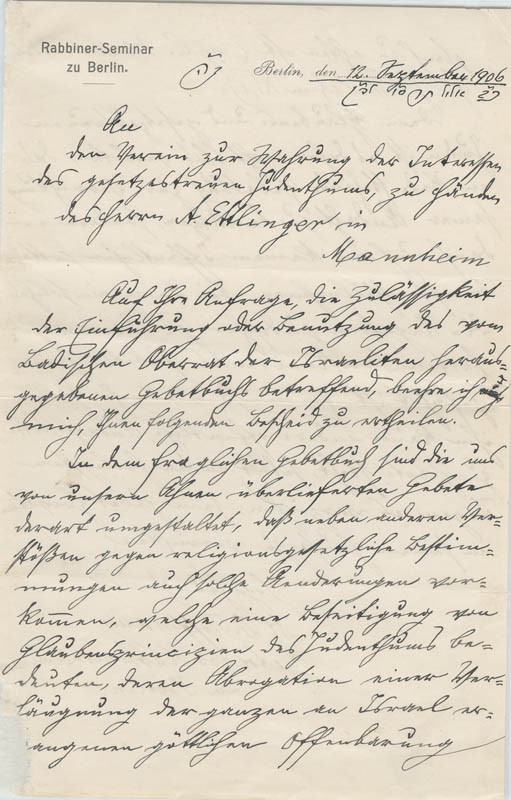 Rabbiner-Seminar
zu Berlin.
Berlin, den 12. September 1906
An
den Verein zur Wahrung der Interessen
des gesetzestreuen Judenthums, zu Händen
des Herrn A. Ettlinger in
Mannheim
Auf Ihre Anfrage, die Zulässigkeit
der Einführung oder Benutzung des vom
Badischen Oberrat der Israeliten heraus-
gegebenen Gebetbuchs betreffend, beehre ich
mich, Ihnen folgenden Bescheid zu ertheilen.
In dem fraglichen Gebetbuch sind die uns
von unsern Ahnen überlieferten Gebete
derart umgestaltet, daß neben anderen Ver-
stößen gegen religionsgesetzliche Bestim-
mungen auch solche Aenderungen vor-
kommen, welche eine Beseitigung von
Glaubensprincipien des Judenthums be-
deuten, deren Abrogation einer Ver-
läugnung der ganzen an Israel er-
gangenen göttlichen Offenbarung